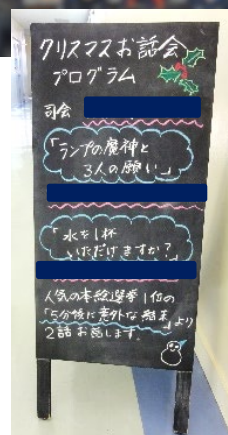 クリスマスお話会
プログラム
司会
「ランプの魔神と
3人の願い」
「水を1杯
いただけますか?」
人気の本総選挙1位の
「5分後に意外な結末」より
2話お話します。